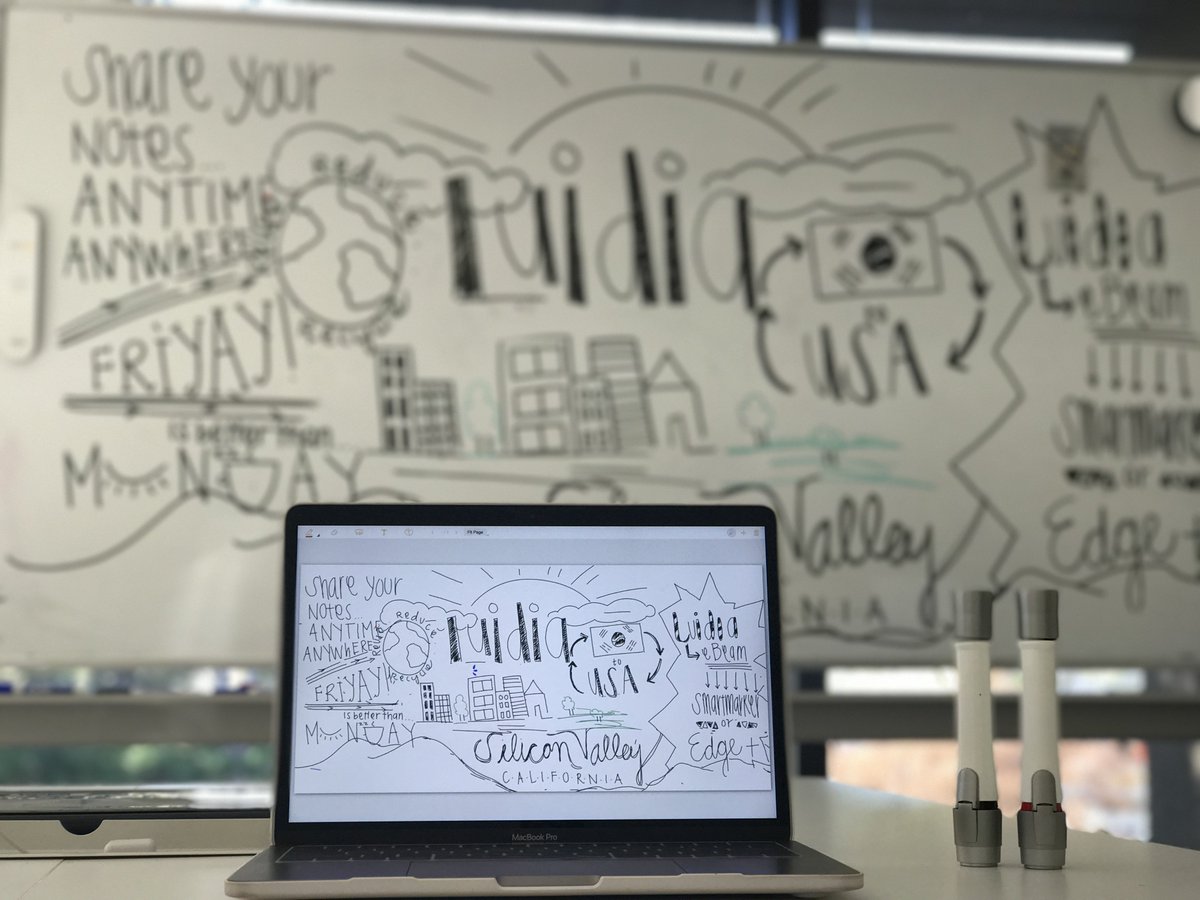 Share your
Notes...
ANYTIME
ANYWHERE
FRiYAY!
is better than
MONDAY
Reduce
Recycle
Luidia
to
USA
Valley
Luidia
eBeam
smartmarker
or
Edge+
Share your
Notes...
ANYTIME
ANYWHERE
FRiYAY!
is better than...
MONDAY
Reduce
Reuse
Recycle
Luidia
to
USA
Silicon Valley
CALIFORNIA
Luidia
eBeam
smartmarker
or
Edge+
Fit Page
MacBook Pro